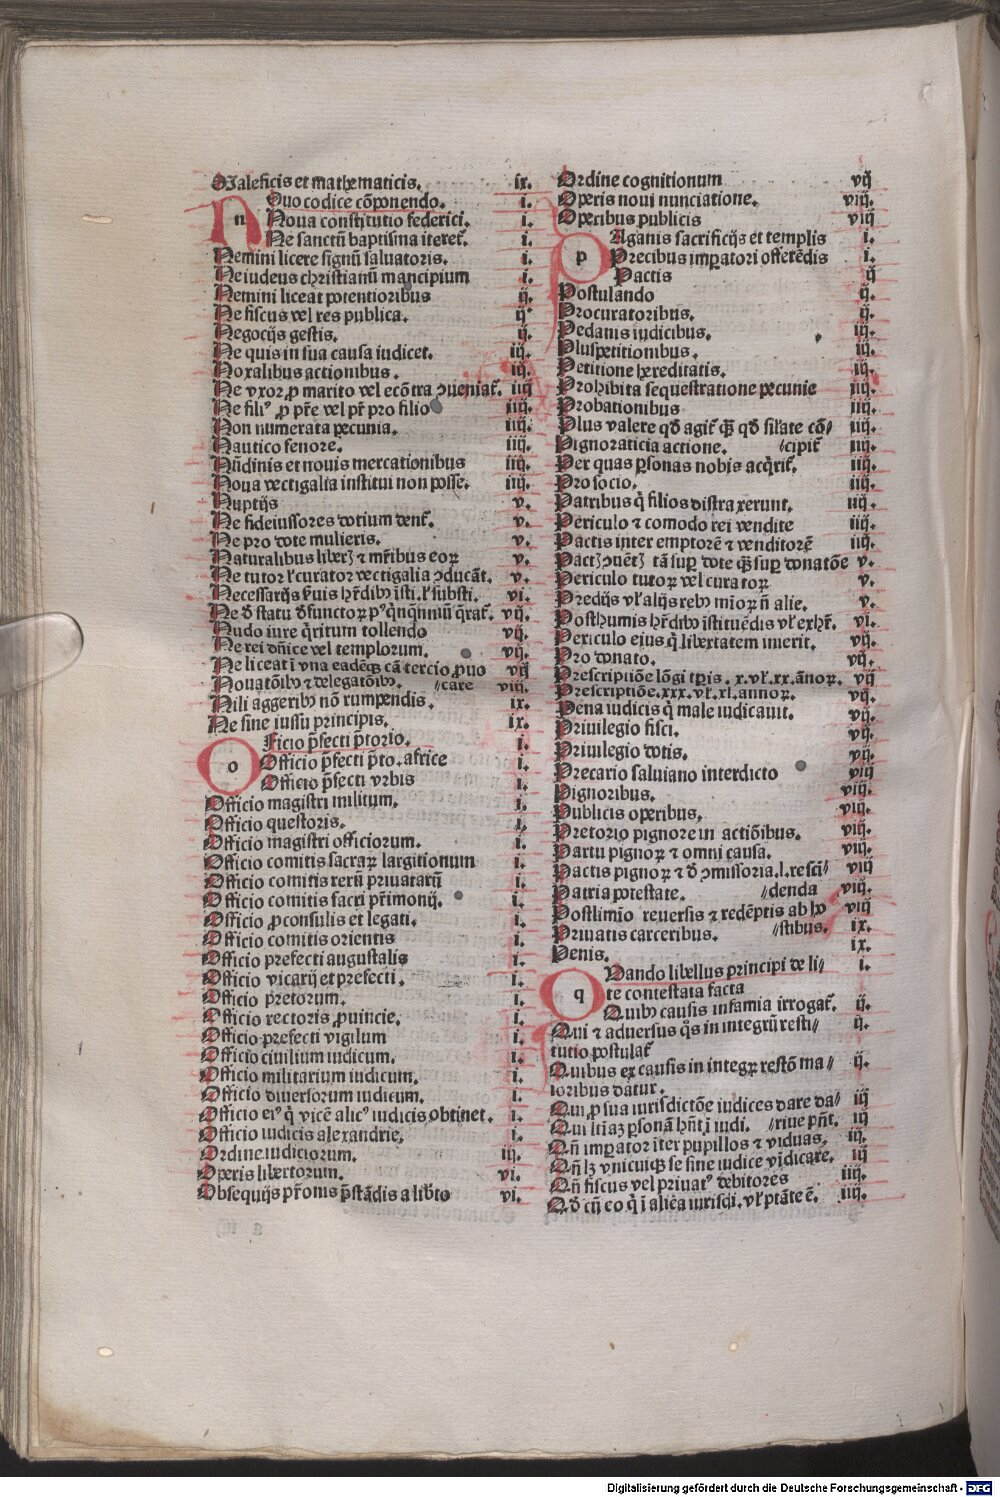 Maleficis et mathematicis. ix.
n Duo codice cōponendo. i.
Noua constitutio federici. i.
Ne sanctū baptisma iteret᷑. i.
Nemini licere signū saluatoris. i.
Ne iudeus christianū mancipium i.
Nemini liceat potentioribus ij.
Ne fiscus vel res publica. ij.
Negocijs gestis. ij.
Ne quis in sua causa iudicet. iij.
Noxalibus actionibus. iij.
Ne vxor ꝓ marito vel ecōtra ꝯueniat᷑. iiij
Ne filiꝰ ꝓ pr̄e vel pr̄ pro filio iiij.
Non numerata pecunia. iiij.
Nautico fenore. iiij.
Nūdinis et nouis mercationibus iiij.
Noua vectigalia institui non posse. iiij.
Nuptijs v.
Ne fideiussores dotium dent᷑. v.
Ne pro dote mulieris. v.
Naturalibus liberꝫ ⁊ mr̄ibus eoꝝ v.
Ne tutor ł curator vectigalia ꝯducāt. v.
Necessarijs ẜuis hr̄dibꝰ īsti. ł substi. vi.
Ne ð statu ðfunctoꝝ pꝰ qͥnqͥnniū q̄rat᷑. vij.
Nudo iure q̄ritum tollendo vij.
Ne rei dn̄ice vel templorum. vij.
Ne liceat ī vna eadēqꝫ cā tercio ꝓuo vij
Nouatōibꝰ ⁊ delegatōibꝰ. //care viij.
Nili aggeribꝰ nō rumpendis. ix.
Ne sine iussu principis. ix.
o Ficio p̄fecti p̄torio. i.
Officio p̄fecti p̄to. africe i.
Officio p̄fecti vrbis i.
Officio magistri militum. i.
Officio questoris. i.
Officio magistri officiorum. i.
Officio comitis sacraꝝ largitionum i.
Officio comitis rerū priuatarū i.
Officio comitis sacri pr̄imonij. i.
Officio ꝓconsulis et legati. i.
Officio comitis orientis i.
Officio prefecti augustalis i.
Officio vicarij et prefecti. i.
Officio pretorum. i.
Officio rectoris ꝓuincie. i.
Officio prefecti vigilum i.
Officio ciuilium iudicum. i.
Officio militarium iudicum. i.
Officio diuersorum iudicum. i.
Officio eiꝰ q̄ vicē alicꝰ iudicis obtinet. i.
Officio iudicis alexandrie. i.
Ordine iudiciorum. iij.
Operis libertorum. vi.
Obsequijs pr̄onis p̄stādis a lib̄to vi.
Ordine cognitionum vij
Operis noui nunciatione. viij.
Operibus publicis viij
p Aganis sacrificijs et templis i.
Precibus imꝑatori offerēdis i.
Pactis ij
Postulando ij.
Procuratoribus. ij.
Pedanis iudicibus. iij.
Pluspetitionibus. iij.
Petitione hereditatis. iij.
Prohibita sequestratione pecunie iiij.
Probationibus iiij.
Plus valere qð agit᷑ qꝫ qð sil̄ate cō// iiij.
Pignoraticia actione. //cipit᷑ iiij.
Per quas ꝑsonas nobis acq̄rit᷑. iiij.
Pro socio. iiij.
Patribus q̄ filios distraxerunt. iiij.
Periculo ⁊ comodo rei vendite iiij.
Pactis inter emptorē ⁊ venditorē iiij.
Pactꝫ ꝯuētꝫ tā suꝑ dote qꝫ suꝑ donatōe v.
Periculo tutoꝝ vel curatoꝝ v.
Predijs vł alijs rebꝰ mīoꝝ n̄ alie. v.
Posthumis hr̄dibꝰ īstituēdis vł exhr̄. vi.
Periculo eius q̄ libertatem inierit. vij.
Pro donato. vij.
Prescriptiōe lōgi tꝑis. x. vł. xx. ānoꝝ. vij
Prescriptiōe. xxx. vł. xl. annoꝝ. vij.
Pena iudicis q̄ male iudicauit. vij.
Priuilegio fisci. vij.
Priuilegio dotis. vij.
Precario saluiano interdicto viij
Pignoribus. viij.
Publicis operibus. viij.
Pretorio pignore in actiōibus. viij.
Partu pignoꝝ ⁊ omni causa. viij.
Pactis pignoꝝ ⁊ ð ꝯmissoria. l. resci// viij
Patria potestate. //denda viij.
Postlimīo reuersis ⁊ redēptis ab ho viij
Priuatis carceribus. //stibus. ix.
Penis. ix.
q Uando libellus principi de li// i.
te contestata facta
Quibꝰ causis infamia irrogat᷑. ij.
Qui ⁊ aduersus q̄s in integrū resti// ij.
tutio postulat᷑
Quibus ex causis in integꝝ restō ma// ij.
ioribus datur.
Qui ꝓ sua iurisdictōe iudices dare da// iij
Qui litiaꝫ ꝑsonā hn̄t ī iudi. //riue pn̄t. iij
Qn̄ imꝑator īter pupillos ⁊ viduas. iij.
Qn̄ lꝫ vnicuiqꝫ se sine iudice vīdicare. iij
Qn̄ fiscus vel priuatꝰ debitores iiij.
Qð cū eo q̄ ī aliēa iurisdi. vł ptāte ē. iiij.
Digitalisierung gefördert durch die Deutsche Forschungsgemeinschaft - DFG